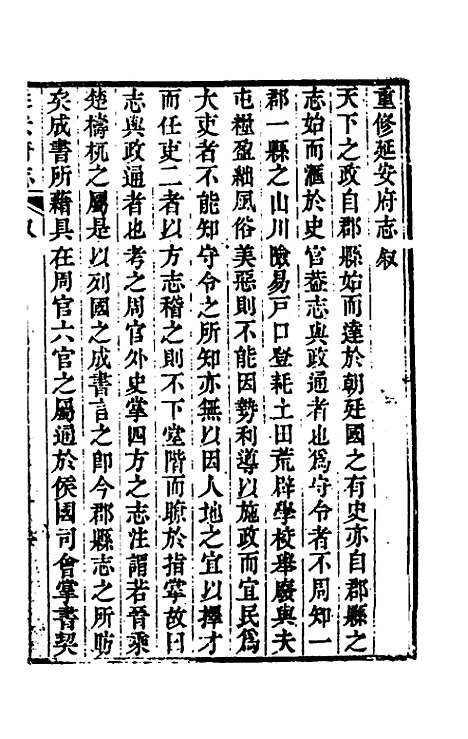 重修延安府志叙
天下之政自郡縣始而達於朝廷國之有史亦自郡縣之
志始而滙於史官蓋志與政通者也爲守令者不周知一
郡一縣之山川險易戶口登耗土田荒辟學校舉廢與夫
屯糧盈絀風俗美惡則不能因勢利導以施政而宜民爲
大吏者不能知守令之所知亦無以因人地之宜以擇才
而任吏二者以方志稽之則不下堂階而瞭於指掌故曰
志與政通者也考之周官外史掌四方之志注謂若晉乘
楚檮杌之屬是以列國之成書言之即今郡縣志之所昉
矣成書所藉具在周官六官之屬通於侯國司會掌書契